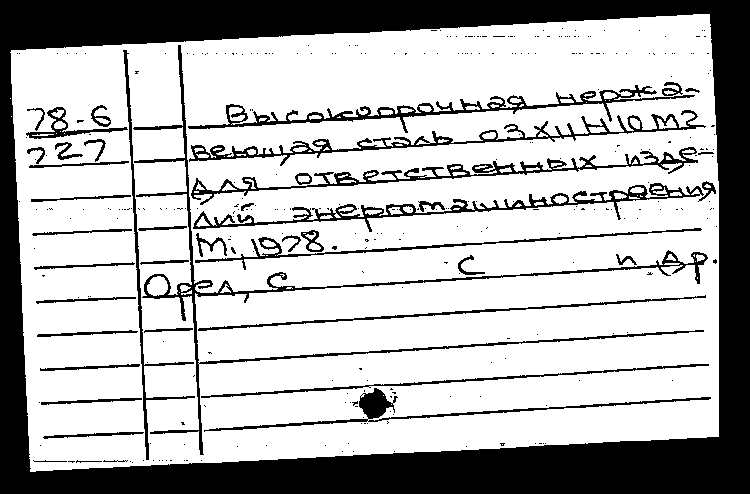 78-6 Высокопрочная нержа-
727 веющая сталь 03Х11Н10М2
для ответственных изде-
лий энергомашиностроения
М., 1978.
Орел, С С и др.